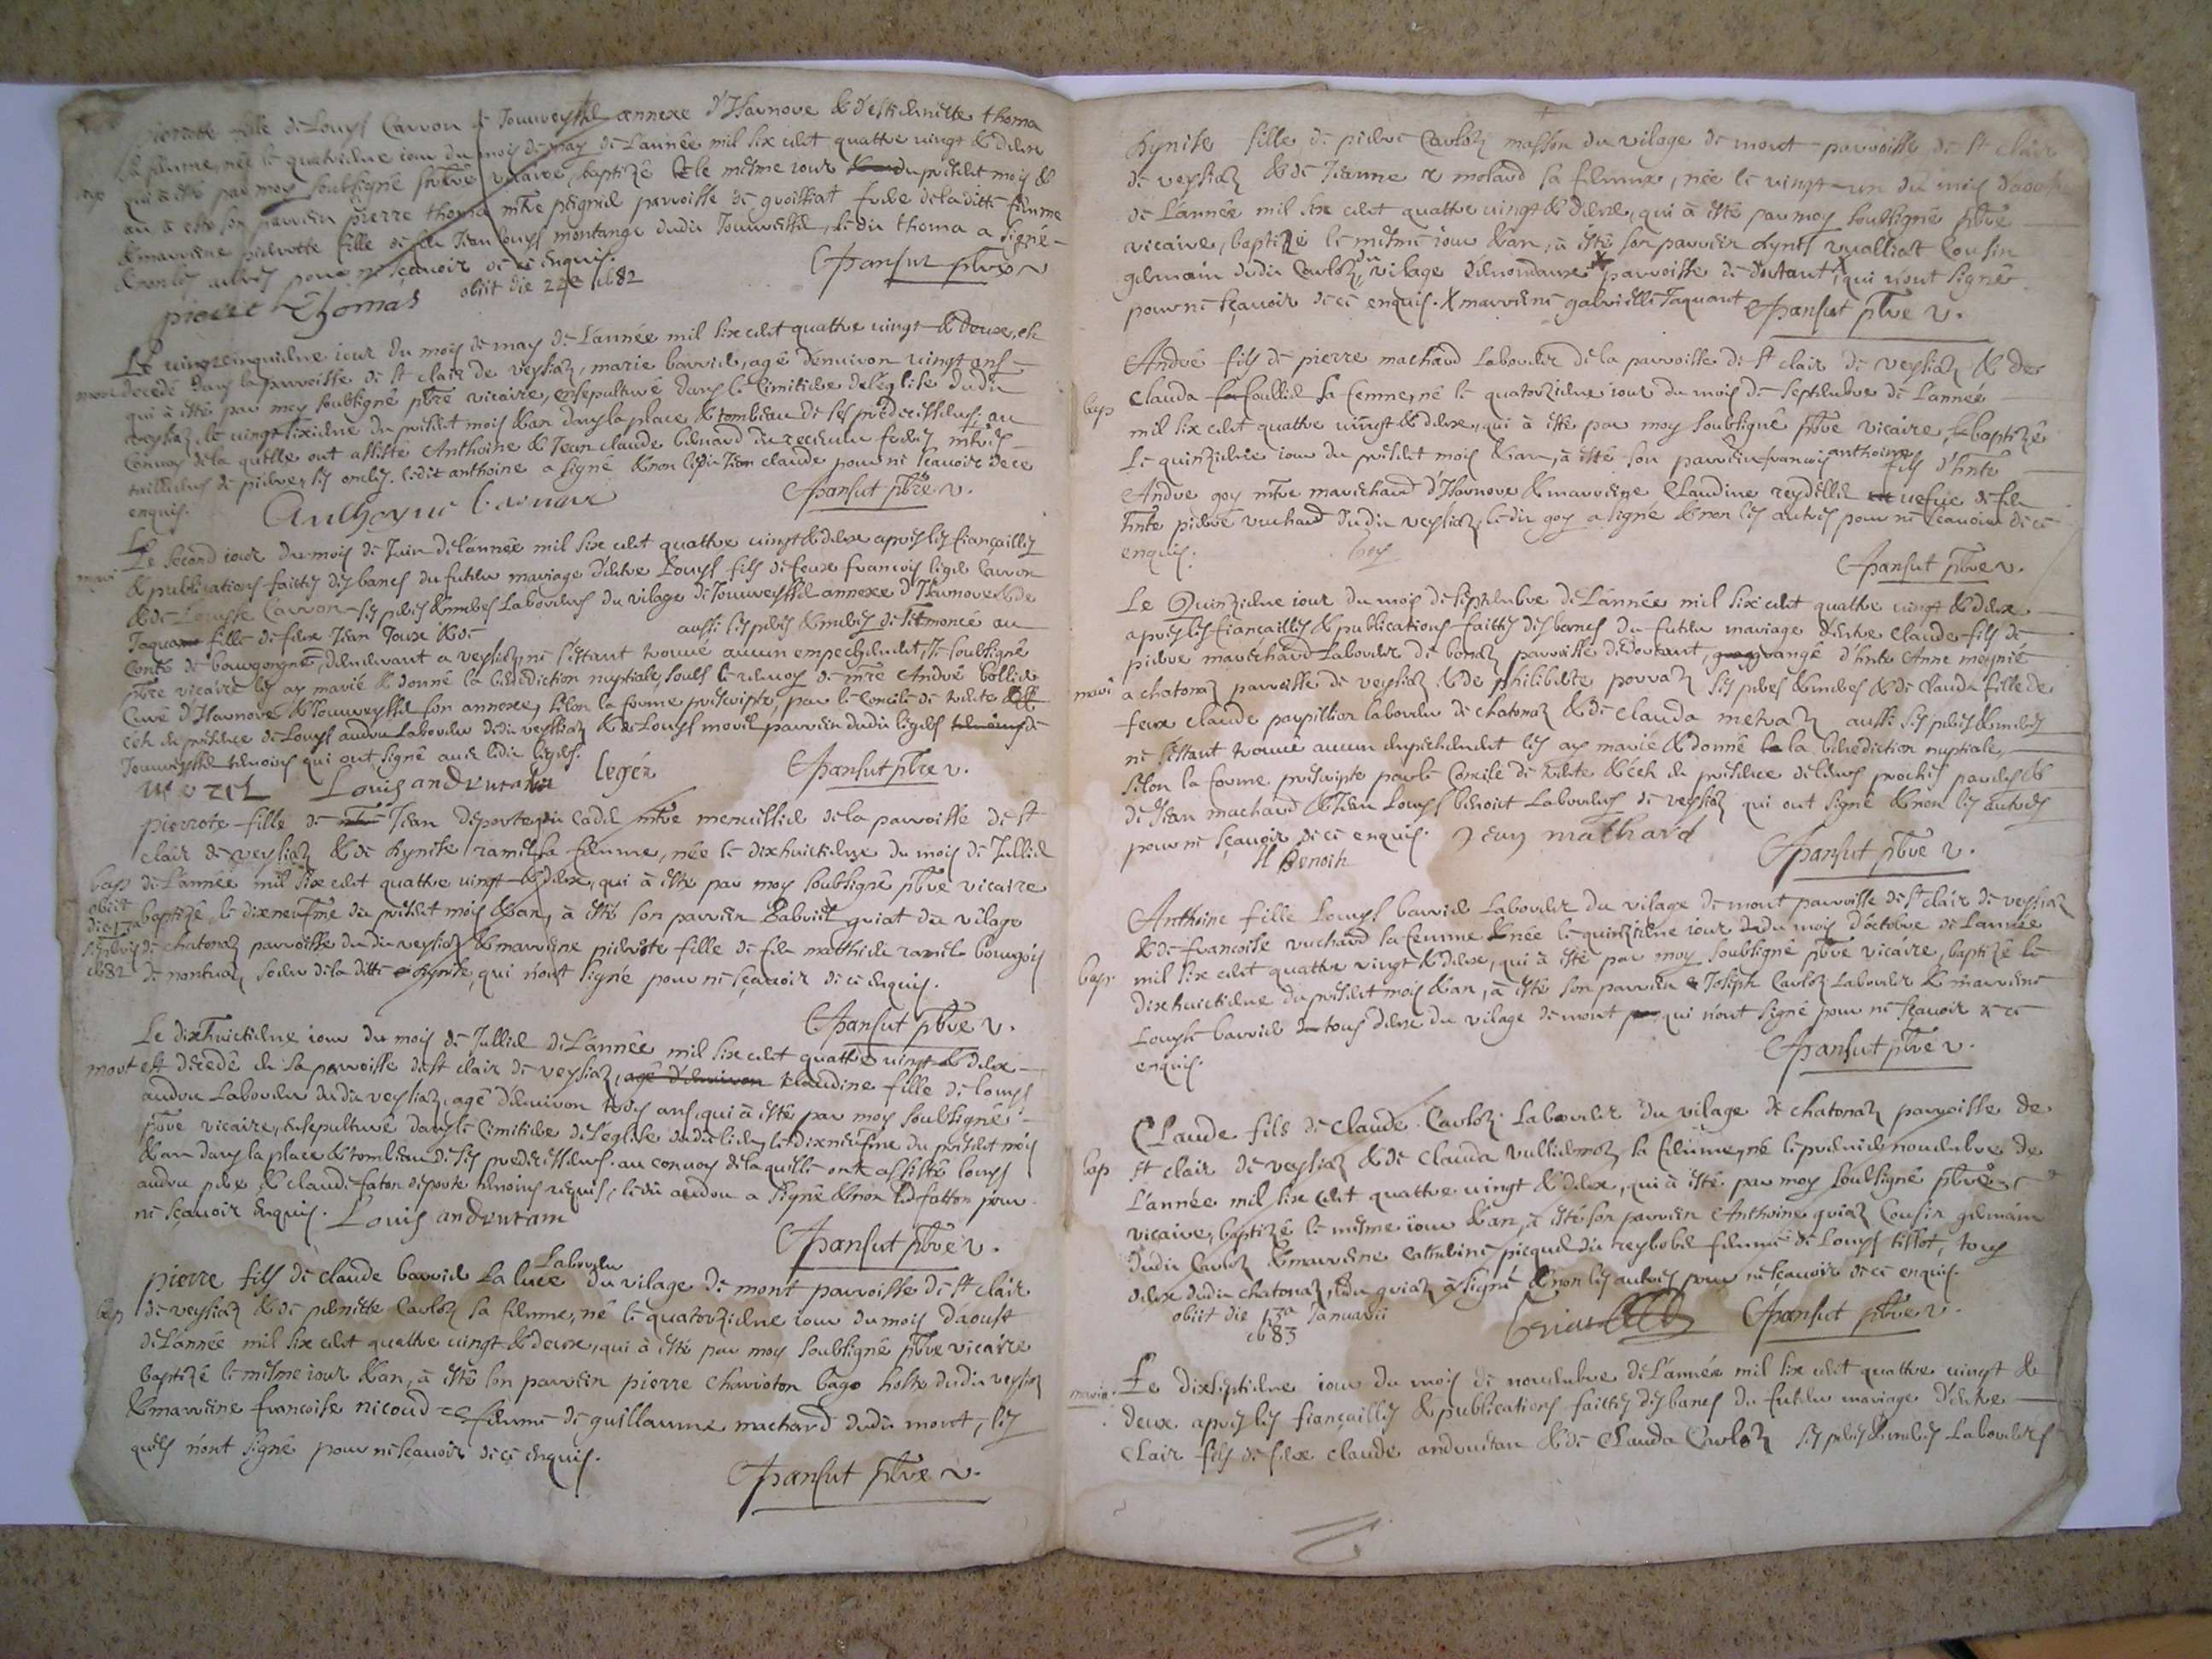 pierrette fille de Louys Carron de Jouvreystel annexe d'Isarnore & d'estiennette thoma
sa femme, née le quatriême iour du mois de may de L'année mil six cent quattre vingt & deux
bap qui à esté par moy soubsigné ptre vicaire, baptizê le mesme iour du present mois &
an à esté son parrein pierre thoma mtre peigneu parroisse de groissiat frere de la ditte femme
& marreine pierrette fille de feu Jean Louys montange dudit Jouvreissel, ledit thoma a signé
& non les autres pour ne sçavoir de ce enquis.
pierre Thomas obiit die 22e 1682 Pansut ptre v
Le vingtcinquieme iour du mois de may de L'année mil six cent quattre vingt & deux, est
mort decedé dans la parroisse de st clair de veysiaz, marie barried, agé d'environ vingt ans
qui à esté par moy soubsigné ptre vicaire, ensepulturé dans le Cimitiere de l'église dudit
veysiaz, le vingt sixieme du present mois & an dans la place & tombeau de ses predecesseurs: au
Convoy de la quelle ont assisté Anthoine & Jean claude benard freres mtres
tailleurs de pierre, ses oncles. ledit anthoine a signé & non ledit Jean claude pour ne sçavoir de ce
enquis. Anthoyne benard Pansut ptre v.
Le second iour du mois de Juin de l'année mil six cent quattre vingt & deux apres les fiançailles
mari & publications faictes des bancs du futur mariage d'entre Louys fils de feux francois leger Carron
& de Louyse Carron ses peres & meres Laboureurs du vilage de Jouvreyssel annexe d'Isarnore & de
Jaquema fille de feux Jean Joux & de aussi ses peres & meres de Sitmoncé au
Conté de bourgongne, demeurant a veysiaz, ne s'estant trouvé aucun empechement, Je soubsigné
ptre vicaire les ay marié & donné la benediction nuptiale, soubs le renvoy de mre André bollié
Curé d'Isarnore & Jouvreyssel son annexe, selon la forme prescripte, par le Concile de trente &
ce en presence de Louys andru Laboureur dudit veysiaz & de Louys morel parrein dudit leger de
Jouvreyssel temoins qui ont signé avec ledit leger.
Morel Louis andruetan leger Pansut ptre v.
pierrote fille de Jean deporte dit Cadet mtre menuissier de la parroisse de st
clair de veysiaz & de Aynise ramel sa femme, née le dixhuictieme du mois de Julliet
bap de L'année mil six cent quattre vingt & deux, qui à esté par moy soubsigné ptre vicaire
obiit baptizé, le dixneufme du present mois & an, à esté son parrein Gabriel guiat du vilage
die 13a
septbris de chatonaz parroisse dudit veysiaz & marreine pierrote fille de feu matthieu ramel bourgois
1682 de nantua, soeur de la ditte Aynise, qui n'ont signé pour ne sçavoir de ce enquis.
Pansut ptre v.
Le dixhuictieme iour du mois de Julliet de L'année mil six cent quattre vingt & deux
mort est decedé en la parroisse de st clair de veysiaz, agé d'environ Claudine fille de Louys
andru Laboureur dudit veysiaz, agé d'environ trois ans, qui à esté par moy soubsigné
ptre vicaire, ensepulturé dans le Cimitiere de l'église dudit lieu, le dixneufme du present mois
& an dans la place & tombeau de ses predecesseurs. au convoy de la quelle ont assisté Louys
andru pere & claude faton deporte temoins requis, ledit andru a signé & non led fatton pour
ne sçavoir enquis. Louis andruetam
Pansut ptre v.
Laboureur
pierre fils de claude barried La luce du vilage de mont parroisse de st clair
bap de veysiaz & de pernette Carloz sa femme, né le quatorzieme iour du mois d'aoust
de L'année mil six cent quattre vingt & deux, qui à esté par moy soubsigné ptre vicaire
baptizé le mesme iour & an, à esté son parrein pierre Charroton bago hoste dudit veysiaz
& marreine francoise nicoud femme de guillaume machard dudit mont, les
quels n'ont signé pour ne sçavoir de ce enquis.
Pansut ptre v.
Aynise fille de pierre Carloz masson du vilage de mont parroisse de st clair
de veysiaz & de Jeanne molard sa femme, née le vingt-un du mois d'aoust
de L'année mil six cent quattre vingt & deux, qui à esté par moy soubsigné ptre
vicaire, baptizé le mesme iour & an, à esté son parrein Aynes vualliat Cousin
germain dudit Carloz, du vilage parroisse de dortant, qui n'ont signé
pour ne sçavoir de ce enquis. X marreine gabrielle Jaquant Pansut ptre v.
André fils de pierre machard Laboureur de la parroisse de st clair de veysiaz & de
bap Clauda Caullied sa femme, né le quatorzieme iour du mois de septembre de L'année
mil six cent quattre vingt & deux, qui à esté par moy soubsigné ptre vicaire, baptizé
Le quinzieme iour du present mois & an, à esté son parrein francois anthoine fils d'hnte
Andre goy mtre marechand d'Isarnore & marreine Claudine reydellet vefue de feu
hnte pierre vuchard dudit veysiaz, ledit goy a signé & non les autres pour ne sçavoir de ce
enquis. Goy
Pansut ptre v.
Le Quinzieme iour du mois de septembre de L'année mil six cent quattre vingt & deux
apres les fiançailles & publications faictes des bancs du futur mariage d'entre claude fils de
pierre marechand Laboureur de bonaz parroisse de dortant, grangé d'hnte Anne meynié
mari a chatonaz parroisse de veysiaz & de philiberte porraz ses peres & meres & de clauda fille de
feux claude papillion laboureur de chatonaz & de clauda metraz aussi ses peres & meres
ne s'estant trouvé aucun empeschement les ay marié & donné la benediction nuptiale,
selon la forme prescripte par le Concile de trente & ce en presence de leurs proches parens &
de Jean machard & Jean Louys benoict Laboureurs de veysiaz qui ont signé & non les autres
pour ne sçavoir de ce enquis. Jean mathard
Jl Benoit Pansut ptre v.
Anthoine fille Louys barried Laboureur du vilage de mont parroisse de st clair de veysiaz
& de francoise vuchard sa femme née le quinzieme iour du mois d'octobre de L'année
bap mil six cent quattre vingt & deux, qui à esté par moy soubsigné ptre vicaire, baptizé le
dixhuictieme du present mois & an, à esté son parrein Joseph Carloz Laboureur & marreine
Louyse barried tous deux du vilage de mont qui n'ont signé pour ne sçavoir de ce
enquis. Pansut ptre v.
Claude fils de claude Carloz Laboureur du vilage de chatonaz parroisse de
bap st clair de veysiaz & de clauda vulliermoz sa femme, né le premier novembre de
L'année mil six cent quattre vingt & deux, qui à esté par moy soubsigné ptre
vicaire, baptizé le mesme iour & an, à esté son parrein Anthoine guiaz Cousin germain
dudit Carloz & marreine Catherine picquet femme de Louys tissot, tous
deux dudit chatonaz, ledit guiaz a signé & non les autres pour ne sçavoir de ce enquis.
obiit die 13a Januarii
1683 Pansut ptre v.
maria. Le dixseptieme iour du mois de novembre de L'année mil six cent quattre vingt &
deux apres les fiançailles & publications faictes des bancs du futur mariage d'entre
Clair fils de feux claude andruetan & de Clauda Carloz ses peres & meres Laboureurs